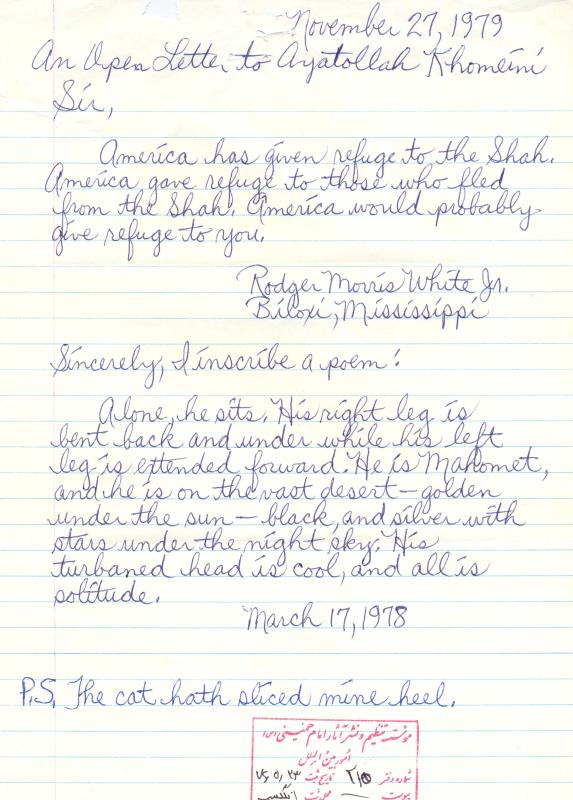 November 27, 1979
An Open Letter to Ayatollah Khomeini
Sir,
America has given refuge to the Shah.
America gave refuge to those who fled
from the Shah. America would probably
give refuge to you.
Rodger Morris White Jr.
Biloxi, Mississippi
Sincerely, I inscribe a poem:
Alone, he sits. His right leg is
bent back and under while his left
leg is extended forward. He is Mahomet,
and he is on the vast desert — golden
under the sun — black, and silver with
stars under the night sky. His
turbaned head is cool, and all is
solitude.
March 17, 1978
P.S. The cat hath sliced mine heel.
موسسه تنظیم و نشر آثار امام خمینی (س)
امور بین الملل
شماره دفتر ۲۱۵ تاریخ ثبت
پیوست انگلیسی